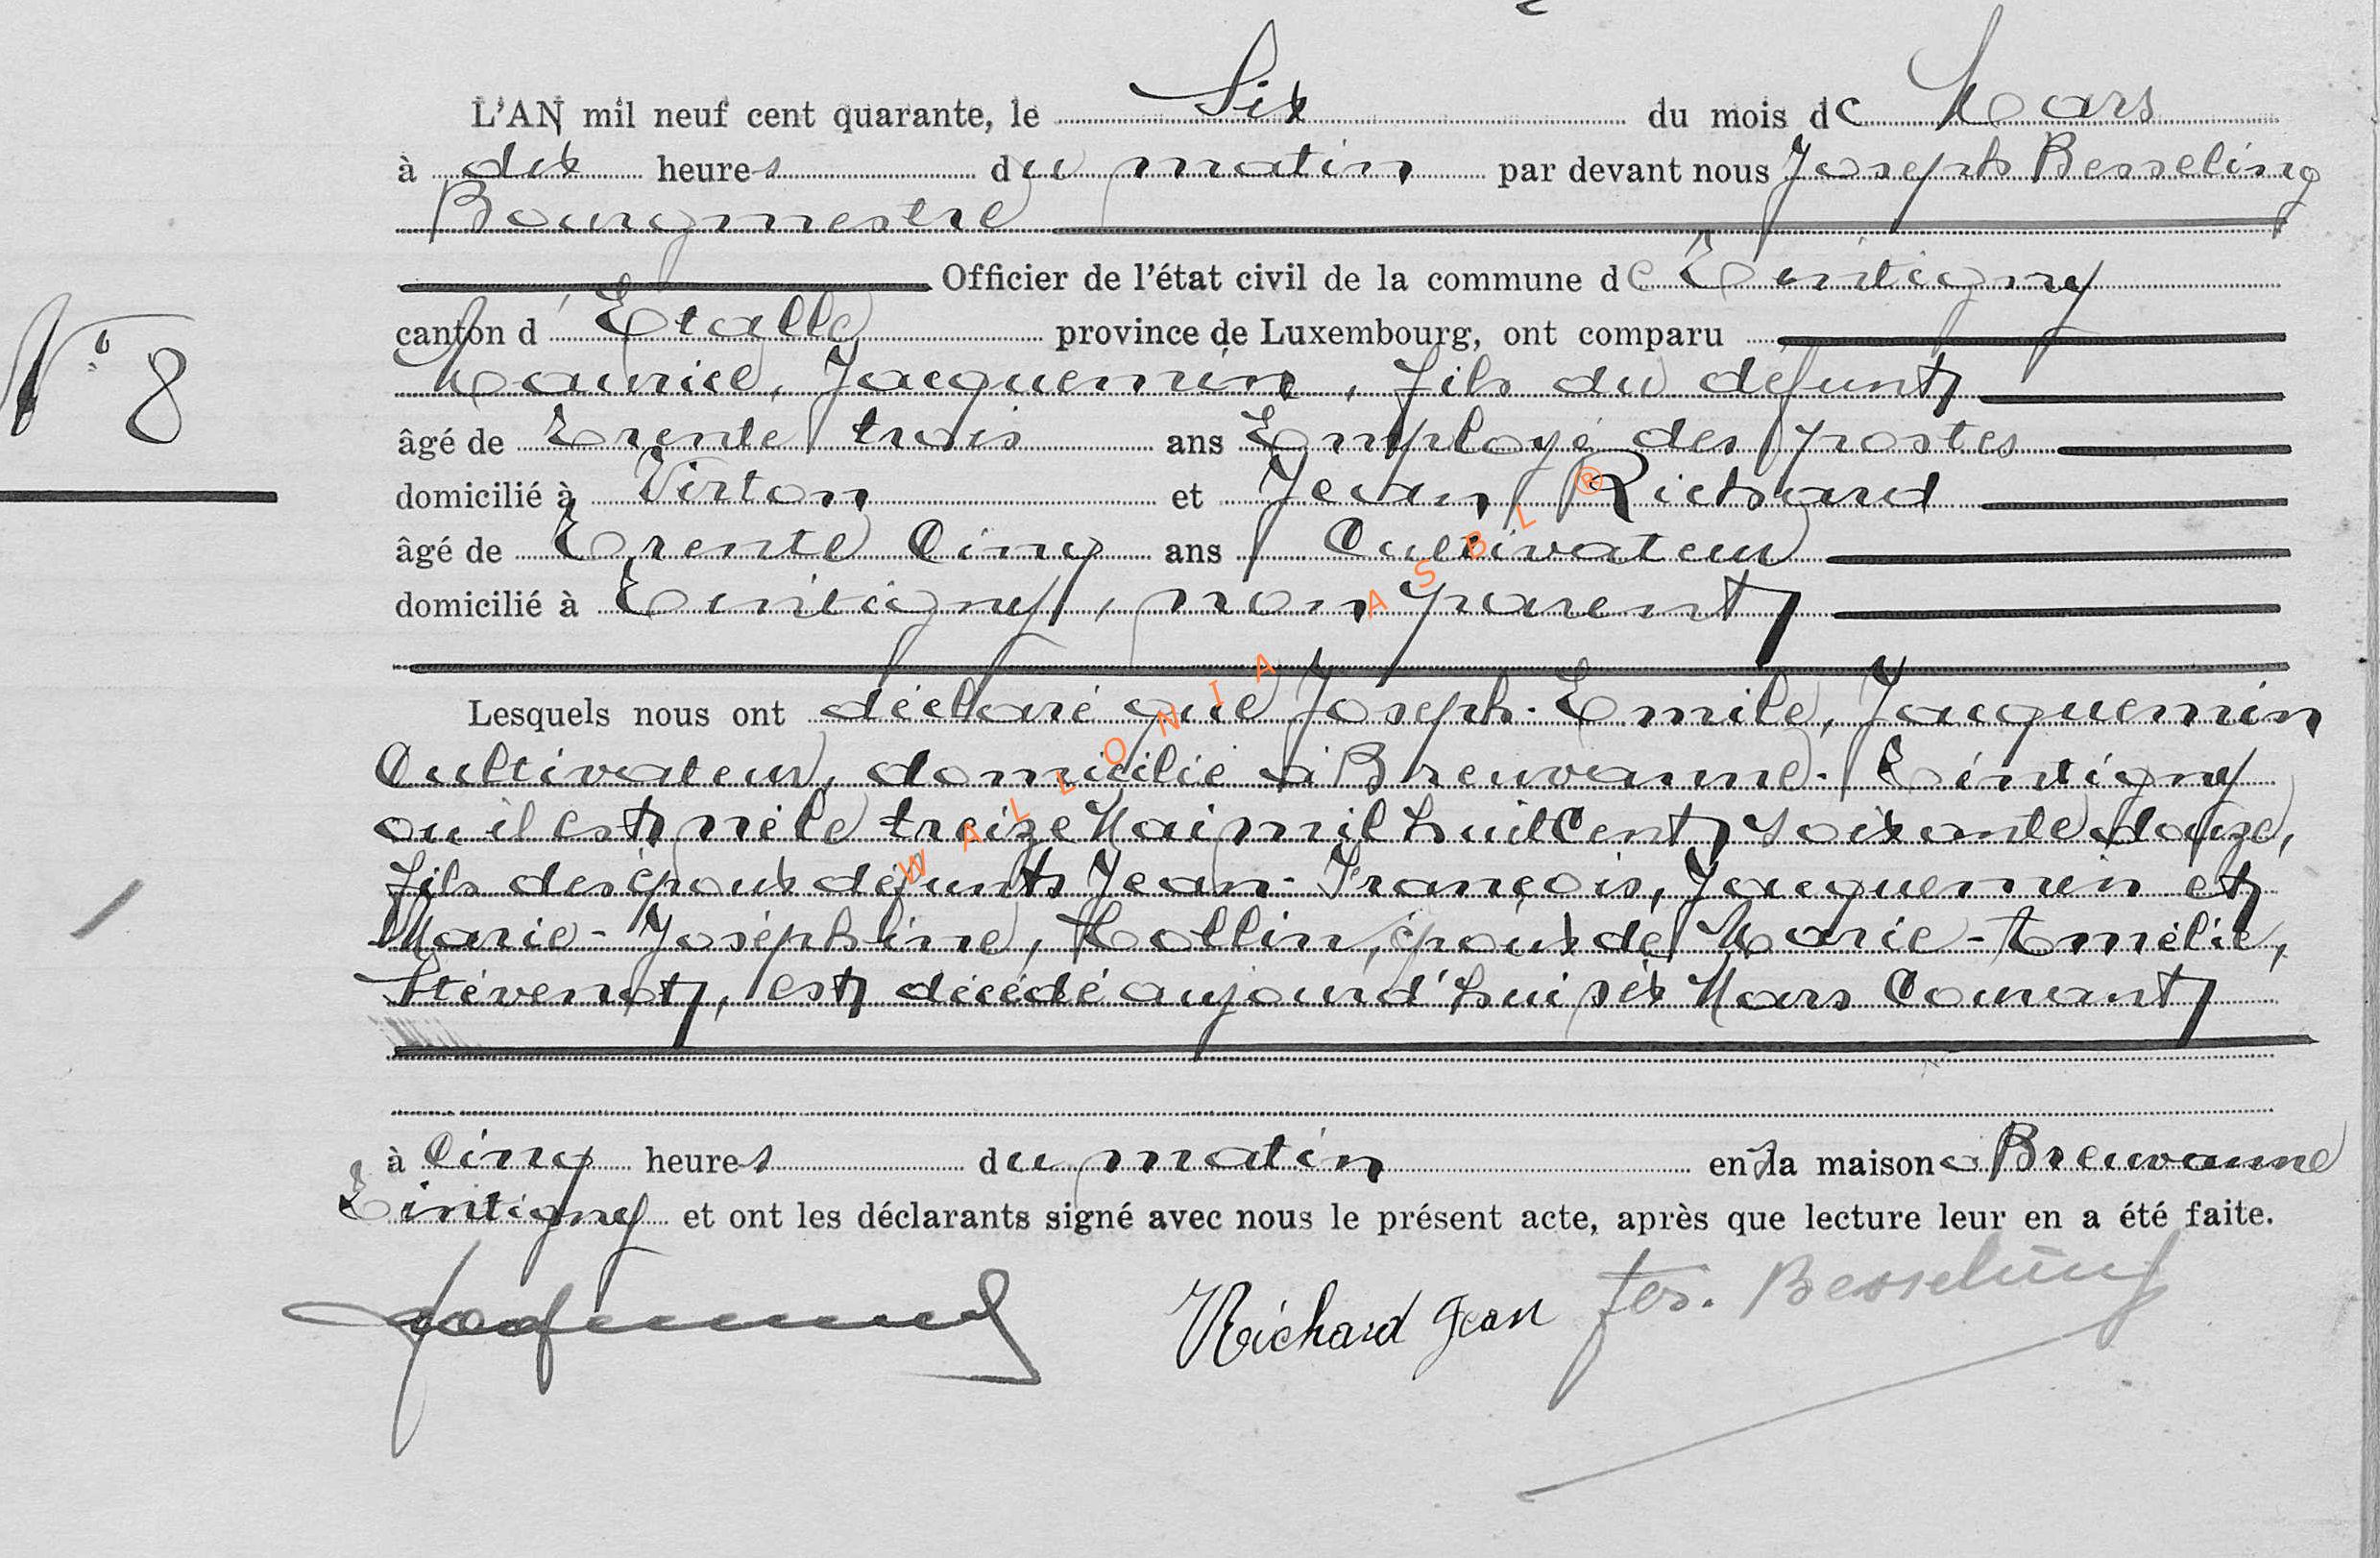 L'AN mil neuf cent quarante, le Six du mois de Mars
à dix heures du matin par devant nous Joseph Besseling
Bourgmestre
Officier de l'état civil de la commune de Tintigny
N° 8
canton d'Etalle province de Luxembourg, ont comparu
Maurice, Jacquemin, fils du défunt
âgé de Trente trois ans Employé des postes
domicilié à Virton et Jean Richard
âgé de Trente Cinq ans Cultivateur
domicilié à Tintigny, non parent
Lesquels nous ont déclaré que Joseph-Emile, Jacquemin
Cultivateur, domicilié à Breuvanne-Tintigny
ou il est né le treize Mai mil huit Cent soixante douze,
fils des époux défunts Jean-François, Jacquemin et
Marie-Joséphine, Collin, époux de Marie-Amélie,
Stévenot, est décédé aujourd'hui six Mars Courant
à Cinq heures du matin en sa maison à Breuvanne
Tintigny et ont les déclarants signé avec nous le présent acte, après que lecture leur en a été faite.
Richard Jean Jos. Besseling
WALLONIA ASBL ®